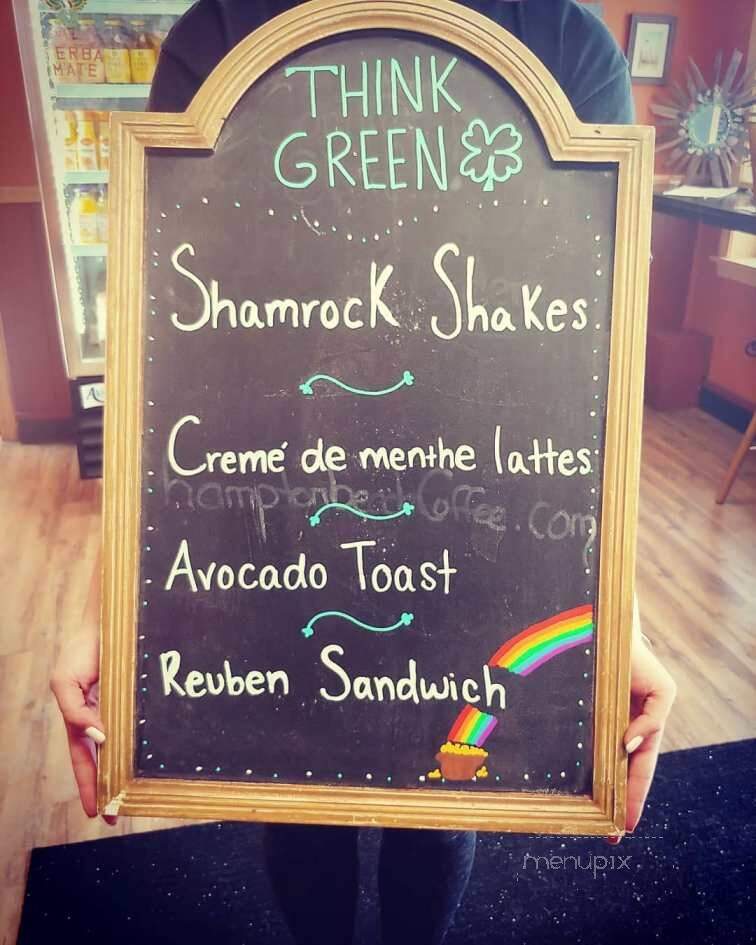 ERBA
MATE
THINK
GREEN
Shamrock Shakes
Cremé de menthe lattes
hamptonbeachCoffee.com
Avocado Toast
Reuben Sandwich
menupix